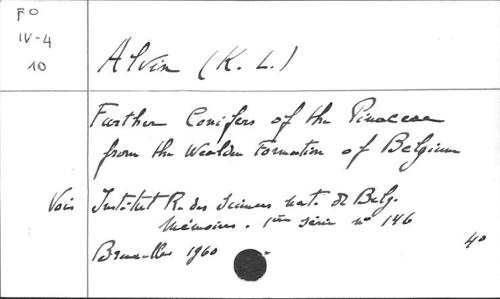 FO
IV-4
10
Alvin (K. L.)
Further Conifers of the Pinaceae
from the Wealden Formation of Belgium
Vois Institut R. des Sciences nat. de Belg.
Mémoires. 1ère série n° 146
Bruxelles 1960 4°